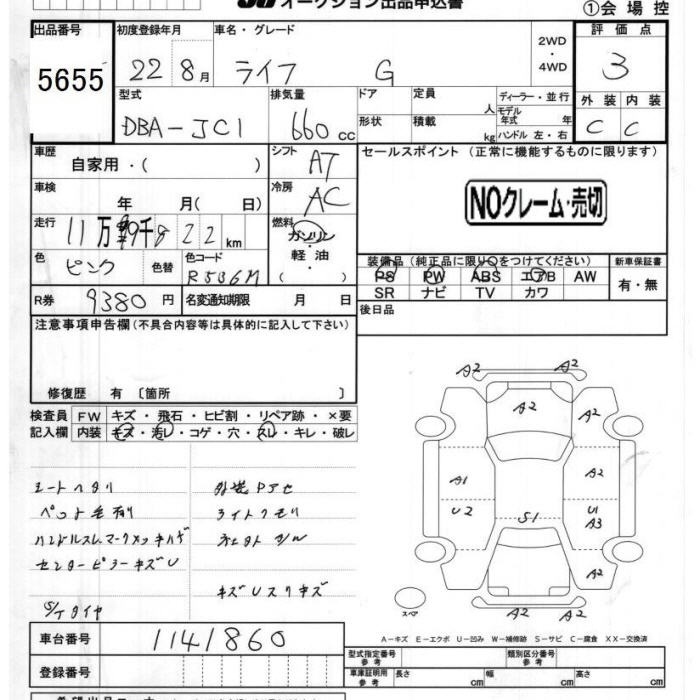 オークション出品申込書 ①会場控
出品番号 初度登録年月 車名・グレード 2WD・4WD 評価点
5655 22 8月 ライフ G 3
型式 排気量 ドア 定員 人 ディーラー・並行 外装 内装
DBA-JC1 660cc 形状 積載 kg モデル年式 年 ハンドル 左・右 C C
車歴 自家用・( ) シフト AT セールスポイント (正常に機能するものに限ります)
車検 年 月( 日) 冷房 AC
NOクレーム・売切
走行 11万 9千 8 2 2 km 燃料 ガソリン・軽油・( )
色 ピンク 色替 色コード R536M
装備品 (純正品に限り○をつけてください) 新車保証書
PS PW ABS エアB AW 有・無
SR ナビ TV カワ
R券 9380円 名変通知期限 月 日
後日品
注意事項申告欄 (不具合内容等は具体的に記入して下さい)
修復歴 有 〔箇所 〕
検査員記入欄 FW キズ・飛石・ヒビ割・リペア跡・×要
内装 キズ・汚レ・コゲ・穴・スレ・キレ・破レ
シートヘタリ
ペット毛有り ライトクモリ
センターピラーキズU キズUスリキズ
S/Tタイヤ
A2 A2
A2 A2
A1 A2
U2 U1
A3
S1
A2
A2
スペア
A-キズ E-エクボ U-凹み W-補修跡 S-サビ C-腐食 XX-交換済
車台番号 1141860
型式指定番号 参考 類別区分番号 参考
登録番号
車庫証明用 参考 長さ cm 幅 cm 高さ cm